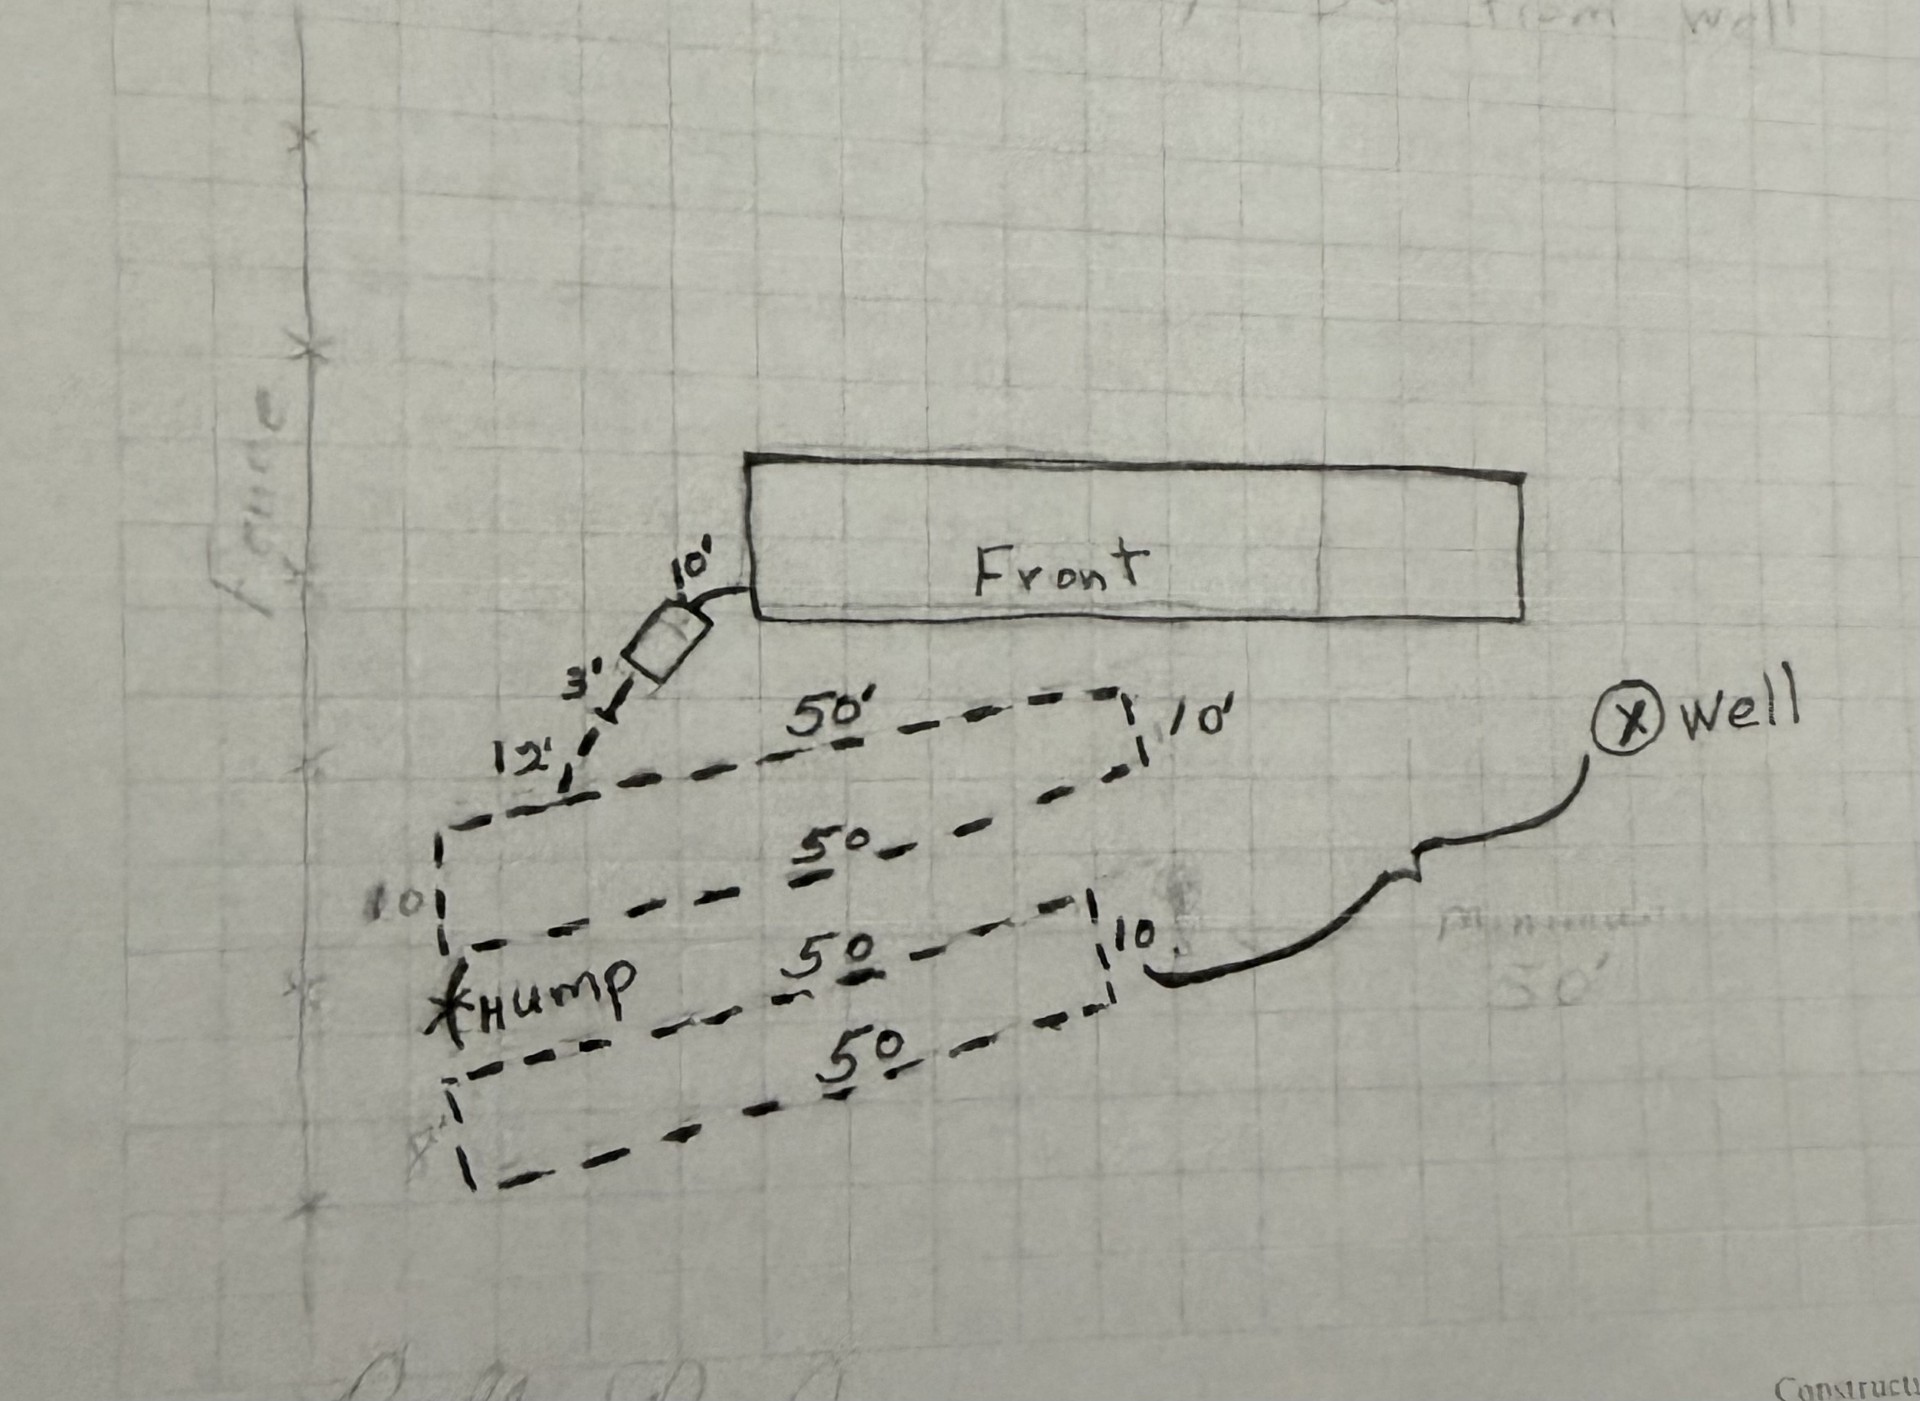 from well
Fence
Front
10'
3'
12'
50'
10'
Well
50
10
50
10
*Hump
Minimum
50'
50